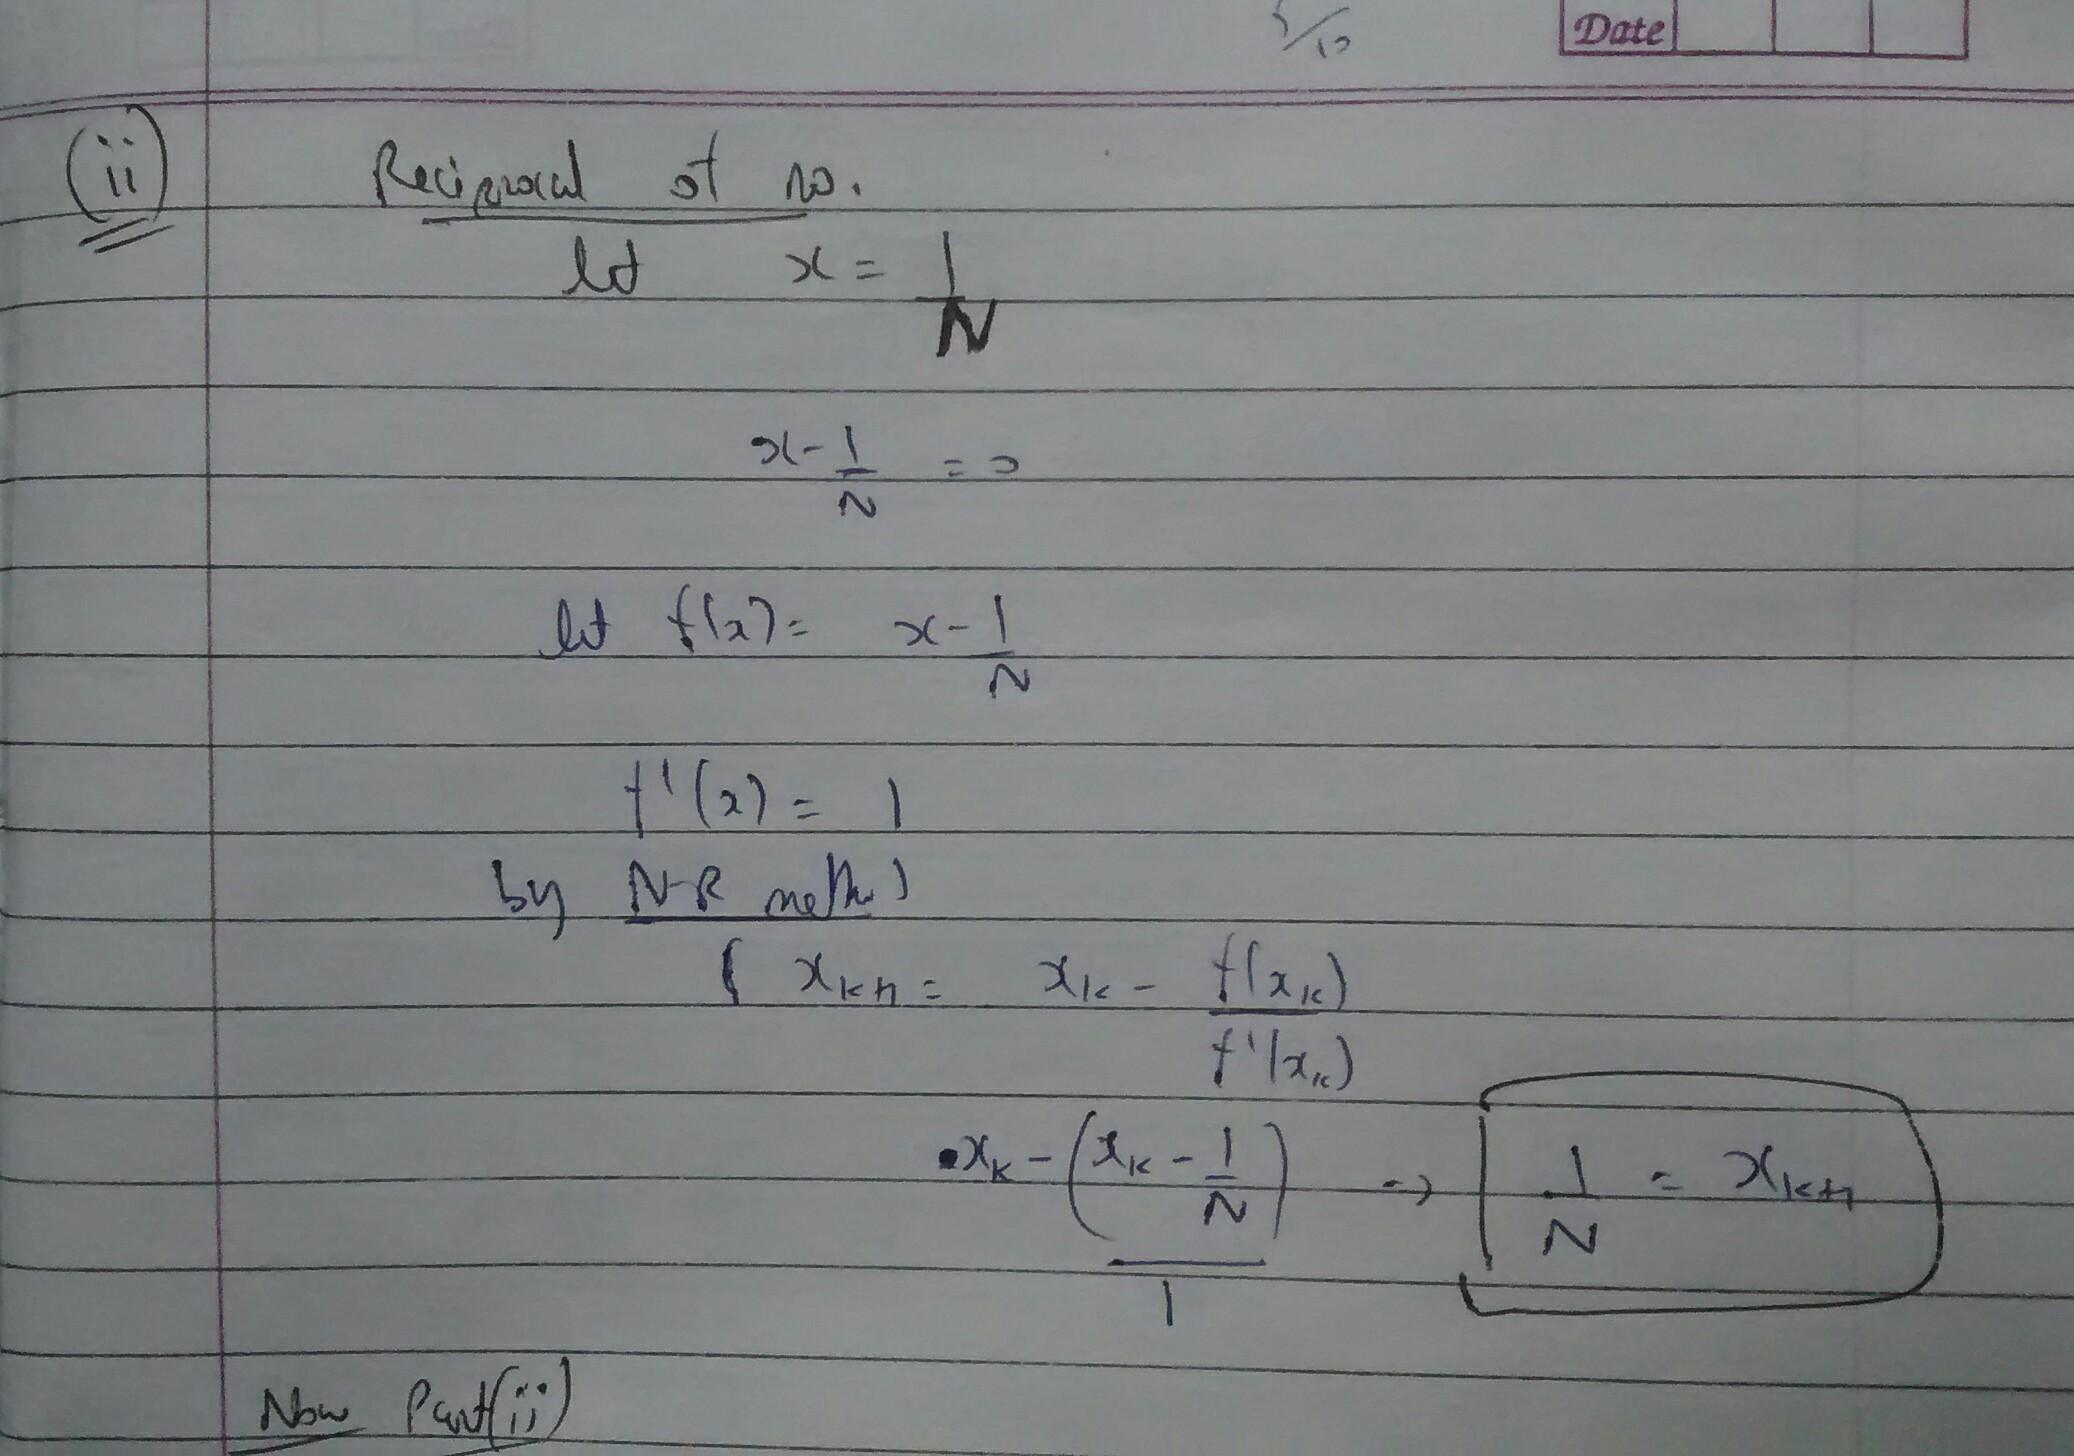 Date
(ii) Reciprocal of no.
let x = 1/N
x - 1/N = 0
let f(x) = x - 1/N
f'(x) = 1
by N-R method
x_{k+1} = x_k - f(x_k)/f'(x_k)
x_k - (x_k - 1/N)/1 → 1/N = x_{k+1}
Now Part(ii)